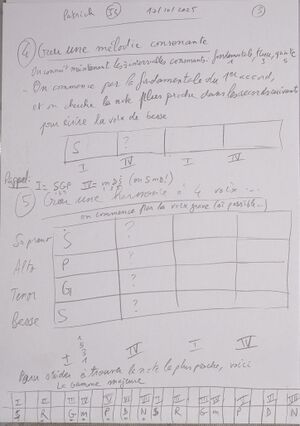 Patrick 12/10/2025 3
4 Créer une mélodie consonante
On connaît maintenant les 3 intervalles consonants. fondamentale, tierce, quinte
1 3 5
- On commence par la fondamentale du 1er accord,
et on cherche la note plus proche dans les accords suivants
pour écrire la voix de basse
S ?
I IV I IV
Rappel: I = SGP IV =
5 Créer une harmonie à 4 voix...
on commence par la voix grave (si possible...)
Soprano S ?
Alto P ?
Tenor G ?
Basse S ?
5
3
1
I IV I IV
Pour s'aider à trouver la note la plus proche, voici
la gamme majeure
S R G m P D N S R G m P D N